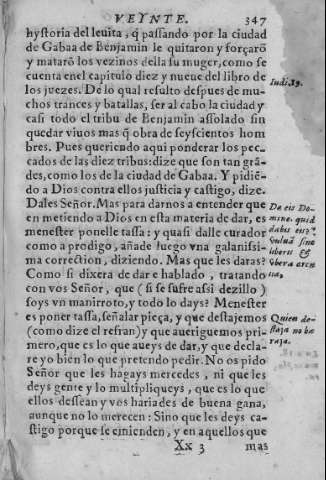 VEYNTE. 347
hystoria del leuita, q̃ passando por la ciudad
de Gabaa de Benjamin le quitaron y forçarõ
y matarõ los vezinos della su muger, como se
cuenta en el capitulo diez y nueue del libro de
los juezes. De lo qual resulto despues de mu-
chos trances y batallas, ser al cabo la ciudad y
casi todo el tribu de Benjamin assolado sin
quedar viuos mas q̃ obra de seyscientos hom
bres. Pues queriendo aqui ponderar los pec-
cados de las diez tribus: dize que son tan grã-
des, como los de la ciudad de Gabaa. Y pidiẽ-
do a Dios contra ellos justicia y castigo, dize.
Dales Señor. Mas para darnos a entender que
en metiendo a Dios en esta materia de dar, es
menester ponelle tassa: y quasi dalle curador
como a prodigo, añade luego vna galanissi-
ma correction, diziendo. Mas que les daras?
Como si dixera de dar e hablado, tratando
con vos Señor, que (si se sufre assi dezillo)
soys vn manirroto, y todo lo days? Menester
es poner tassa, señalar pieça, y que destajemos
(como dize el refran) y que aueriguemos pri-
mero, que es lo que aueys de dar, y que decla-
re yo bien lo que pretendo pedir. No os pido
Señor que les hagays mercedes, ni que les
deys gente y lo multipliqueys, que es lo que
ellos dessean y vos hariades de buena gana,
aunque no lo merecen: Sino que les deys ca-
stigo porque se emienden, y en aquellos que
Xx 3 mas
Iudi. 19.
Da eis Do-
mine. quid
dabis eis?
sine
liberis &
vbera aren
tia.
Quien de-
staja no ba
raja.